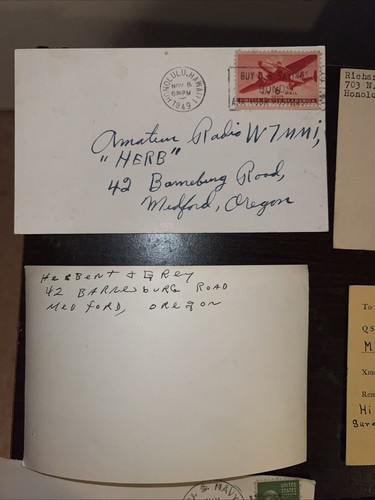 HONOLULU, HAWAII
NOV 8
6 PM
1949
BUY U.S. SAVINGS
BONDS
AIR MAIL
UNITED STATES OF AMERICA
Amateur Radio W7MMI,
"HERB"
42 Barneburg Road,
Medford, Oregon
Richar
703 N.
Honolu
HERBERT J GREY
42 BARNEBURG ROAD
MEDFORD, OREGON
To
QS
M
Xm
Rem
Hi
Sure
U.S. NAVY
UNITED STATES